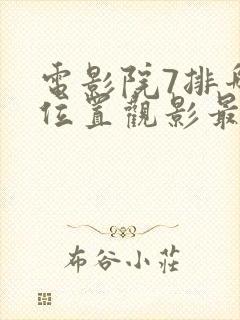 電影院7排
位置觀影最
布谷小莊